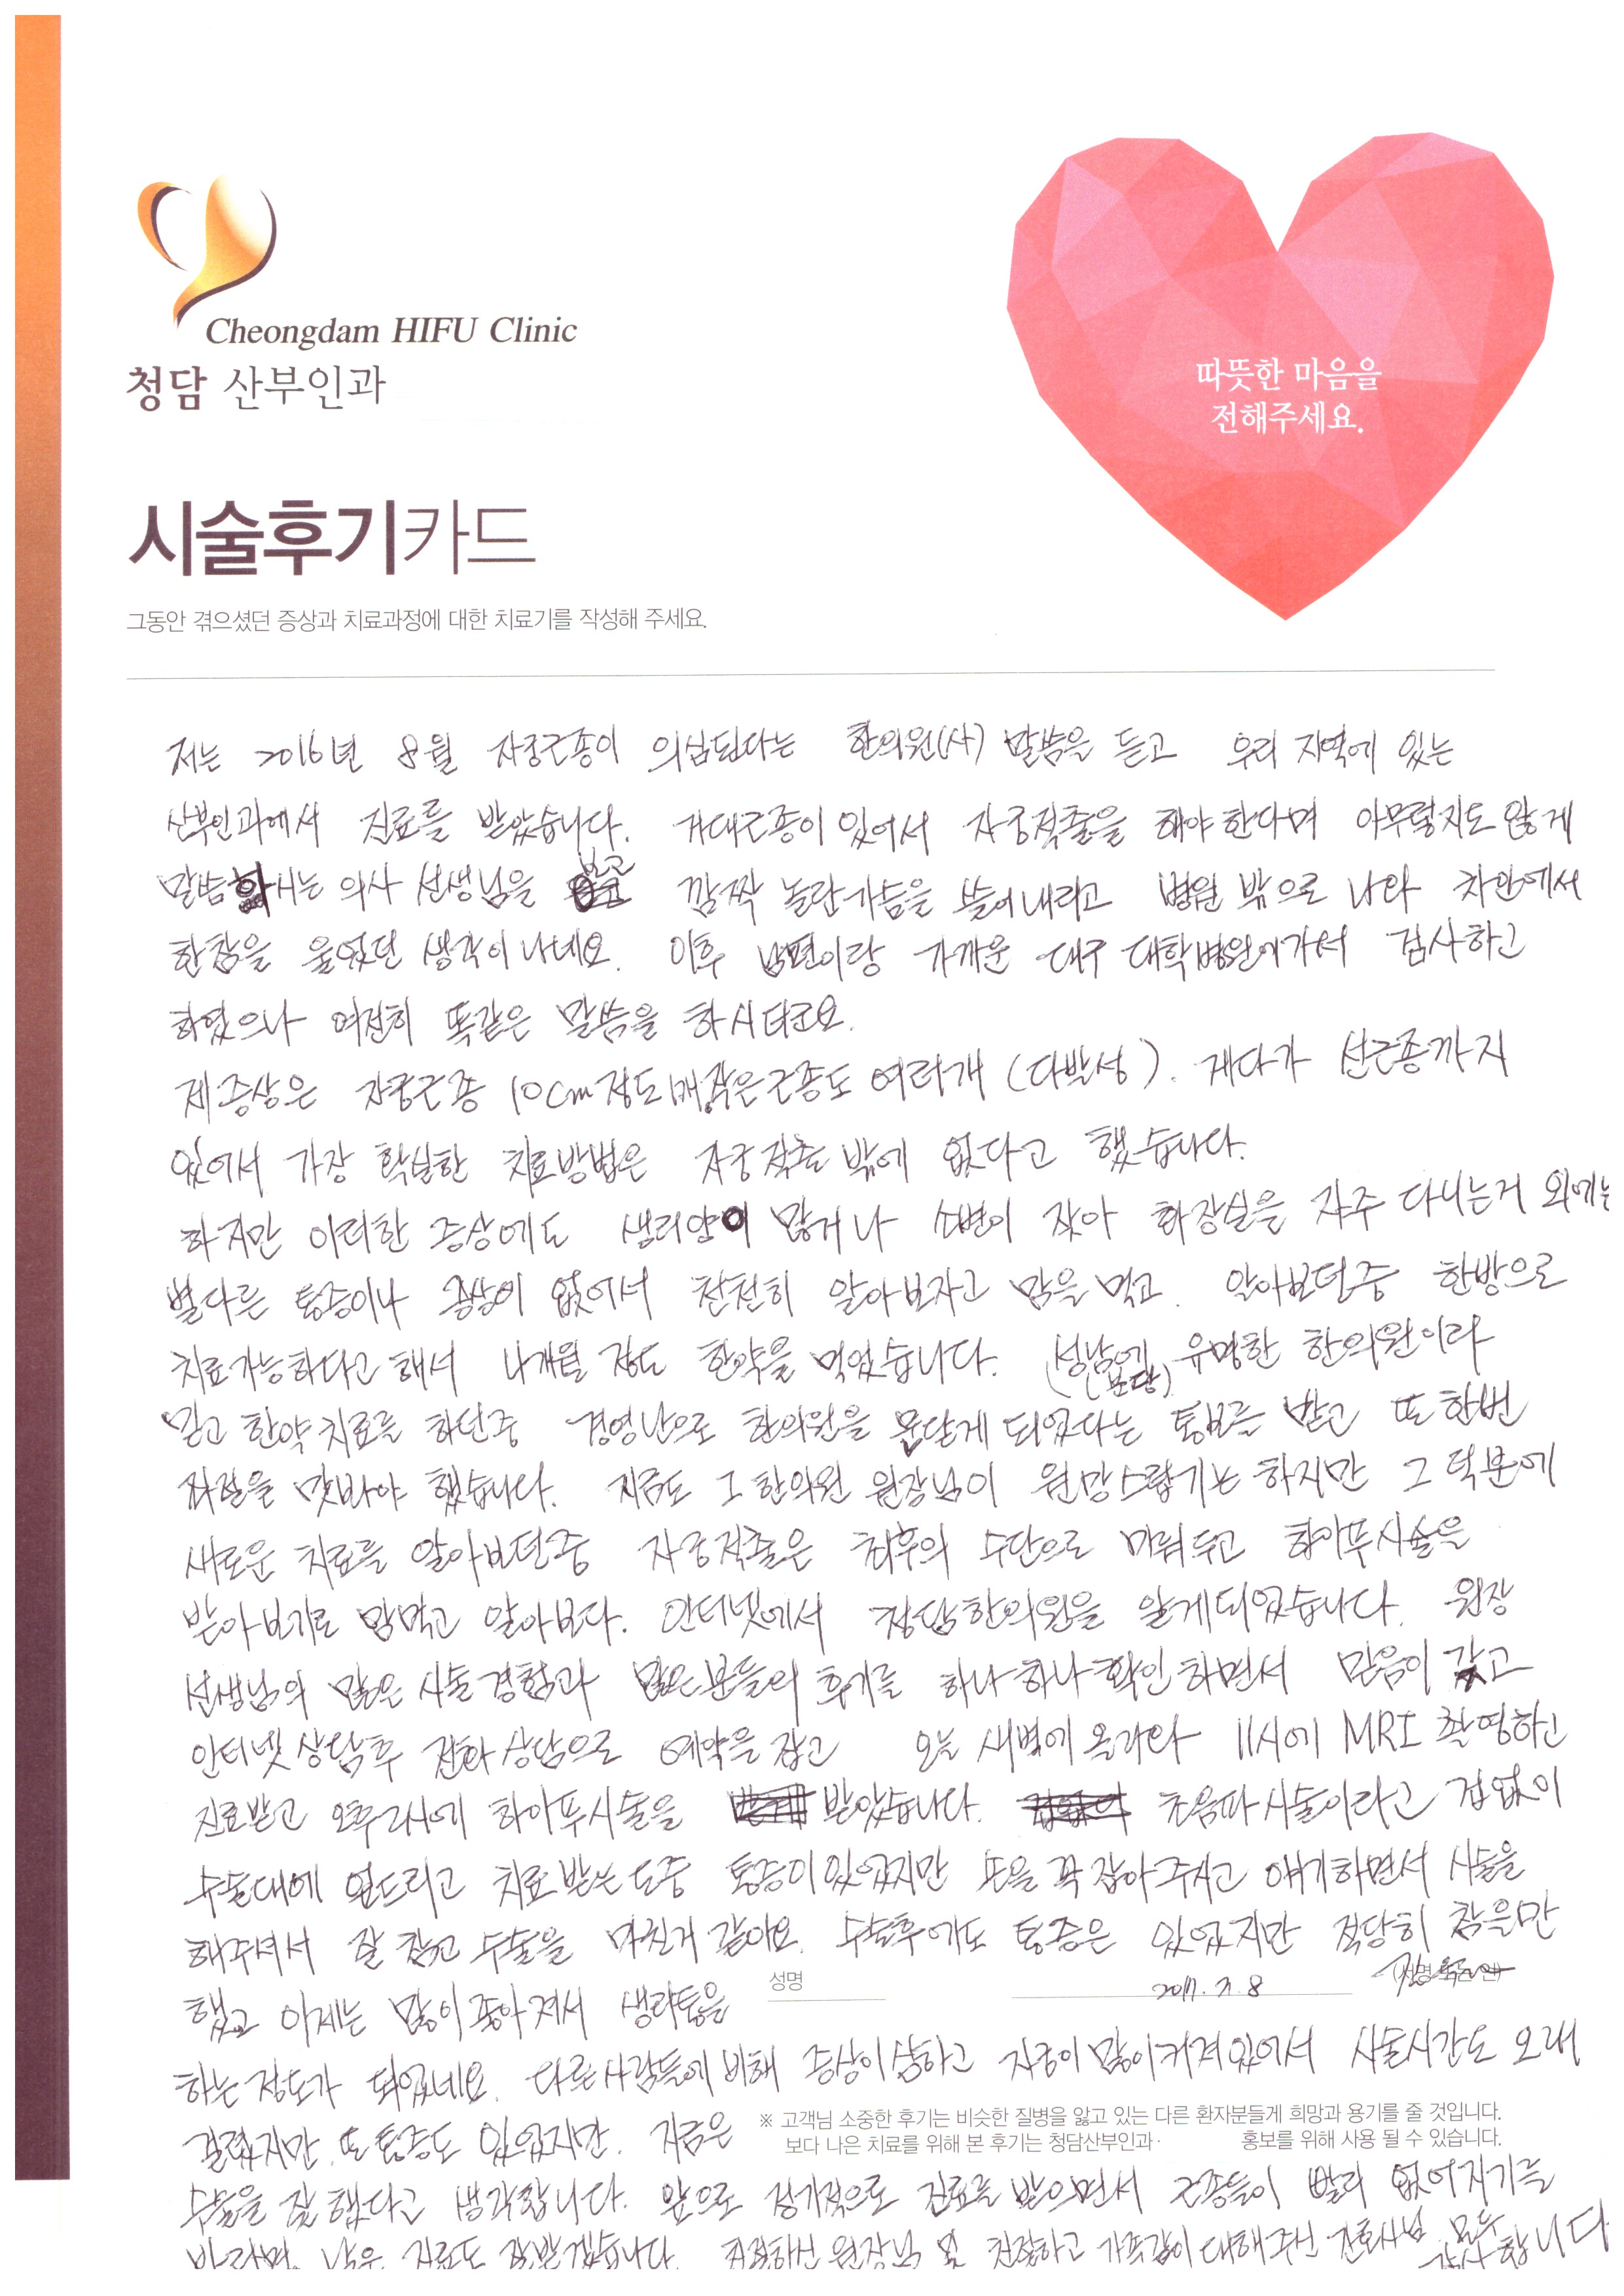 Cheongdam HIFU Clinic
청담 산부인과
따뜻한 마음을
전해주세요.
시술후기카드
그동안 겪으셨던 증상과 치료과정에 대한 치료기를 작성해 주세요.
저는 2016년 8월 자궁근종이 의심된다는 한의원(사) 말씀을 듣고 우리 지역에 있는
산부인과에서 진료를 받았습니다. 거대근종이 있어서 자궁적출을 해야한다며 아무렇지도 않게
말씀하시는 의사 선생님을 보고 깜짝 놀란가슴을 쓸어내리고 병원 밖으로 나와 차안에서
한참을 울었던 생각이 나네요. 이후 남편이랑 가까운 대구 대학병원에가서 검사하고
하였으나 여전히 똑같은 말씀을 하시더군요.
제증상은 자궁근종 10cm정도 1개, 작은근종도 여러개 (다발성). 게다가 선근종까지
있어서 가장 확실한 치료방법은 자궁적출 밖에 없다고 했습니다.
하지만 이러한 증상에도 생리양이 많거나 소변이 잦아 화장실을 자주 다니는거 외에는
별다른 통증이나 증상이 없어서 천천히 알아보자고 맘을 먹고. 알아보던중 한방으로
치료가능하다고 해서 4개월 정도 한약을 먹었습니다. (성남에 유명한 한의원이라
(분당)
믿고 한약치료를 하던중 경영난으로 한의원을 문닫게 되었다는 통보를 받고 또한번
좌절을 맛봐야 했습니다. 지금도 그 한의원 원장님이 원망스럽기는 하지만 그 덕분에
새로운 치료를 알아보던중 자궁적출은 최후의 수단으로 미뤄두고 하이푸시술을
받아보기로 맘먹고 알아보다. 인터넷에서 청담한의원을 알게되었습니다. 원장
선생님의 많은 시술경험과 많은분들의 후기를 하나하나 확인하면서 믿음이 갔고
인터넷 상담후 전화상담으로 예약을 잡고 오늘 새벽에 올라와 11시에 MRI 촬영하고
진료받고 오후2시에 하이푸시술을 받았습니다. 초음파 시술이라고 겁없이
수술대에 엎드리고 치료받는도중 통증이있었지만 손을 꼭 잡아주시고 얘기하면서 시술을
해주셔서 잘 참고 수술을 마친거 같아요. 수술후에도 통증은 있었지만 적당히 참을만
성명 2017. 7. 8
했고 이제는 많이 좋아져서 생리통을
하는 정도가 되었네요. 다른사람들에 비해 증상이 심하고 자궁이 많이커져있어서 시술시간도 오래
걸렸지만. 또 통증도 있었지만. 지금은
※ 고객님 소중한 후기는 비슷한 질병을 앓고 있는 다른 환자분들게 희망과 용기를 줄 것입니다.
보다 나은 치료를 위해 본 후기는 청담산부인과· 홍보를 위해 사용 될 수 있습니다.
수술을 잘 했다고 생각합니다. 앞으로 정기적으로 진료를 받으면서 근종들이 빨리 없어지기를
바라며. 남은 치료도 잘받겠습니다. 친절하신 원장님 및 친절하고 가족같이 대해주신 간호사님 모두
감사합니다